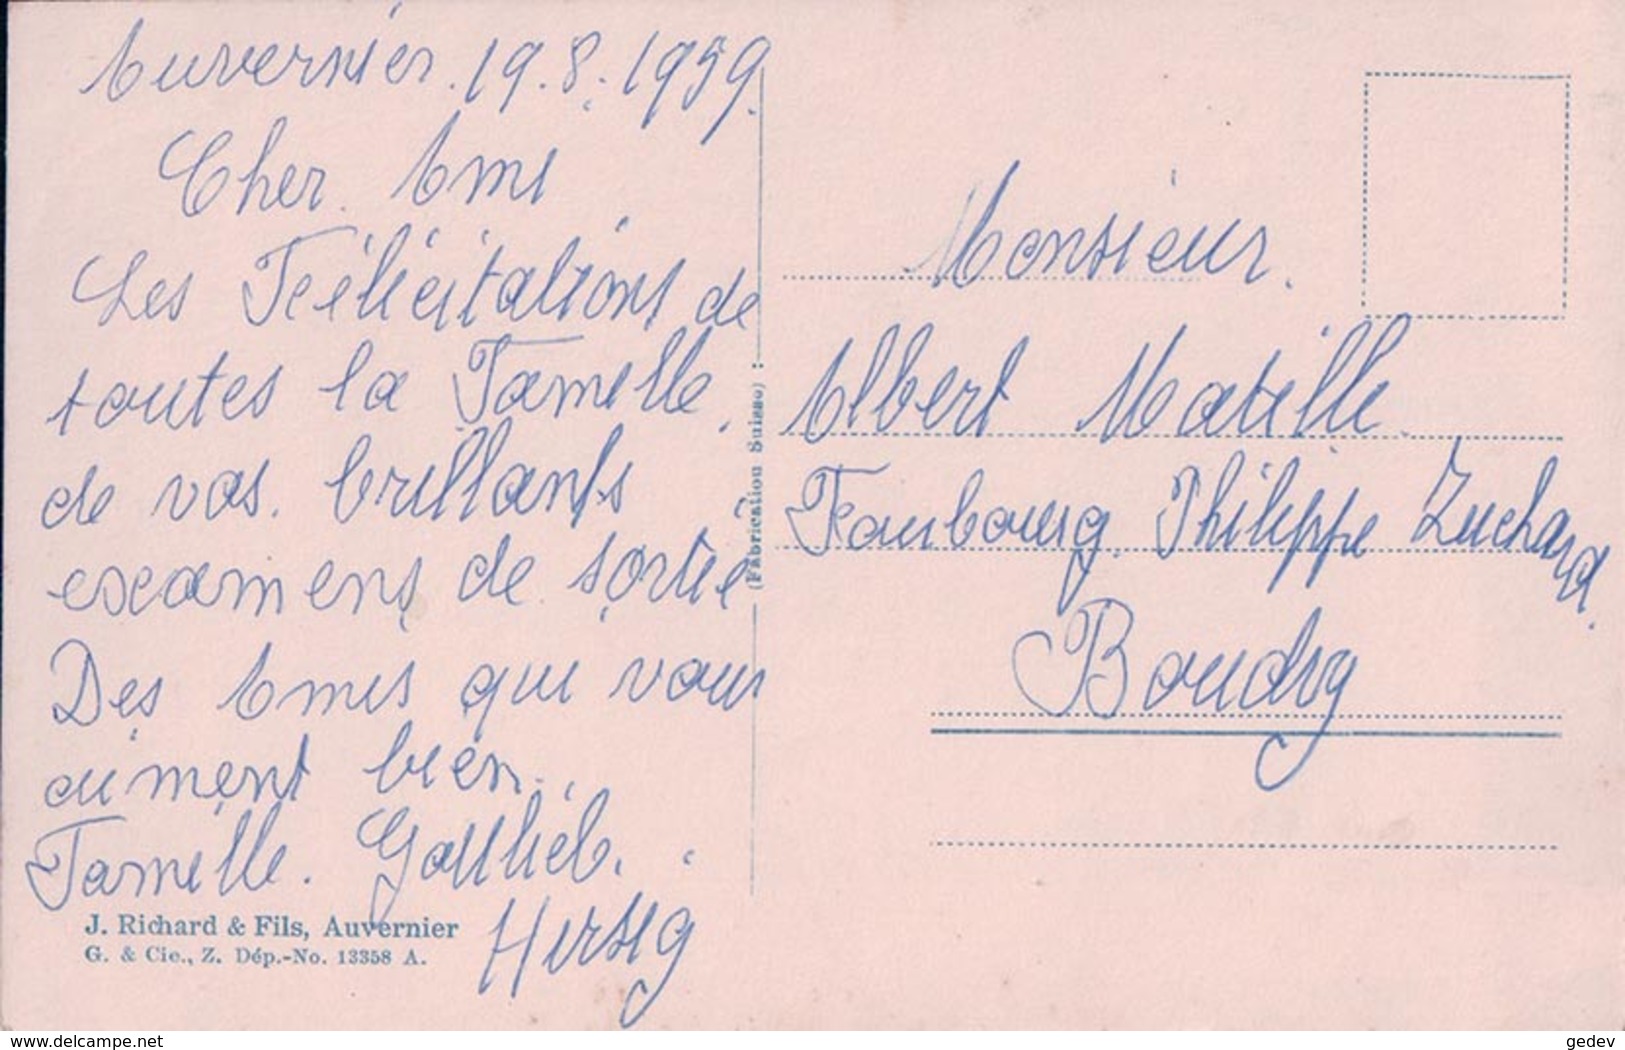 Auvernier. 19.8.1959.
Cher. Ami
Les Félicitations de
toutes la Familles.
de vos. brillants
examens de sortie
Des Amis qui vous
aiment bien..
Famille. Gottlieb.
Hirsig
J. Richard & Fils, Auvernier
G. & Cie., Z. Dép.-No. 13358 A.
(Fabrication Suisse)
Monsieur.
Albert Matille.
Faubourg. Philippe Suchard.
Boudry
www.delcampe.net
gedev